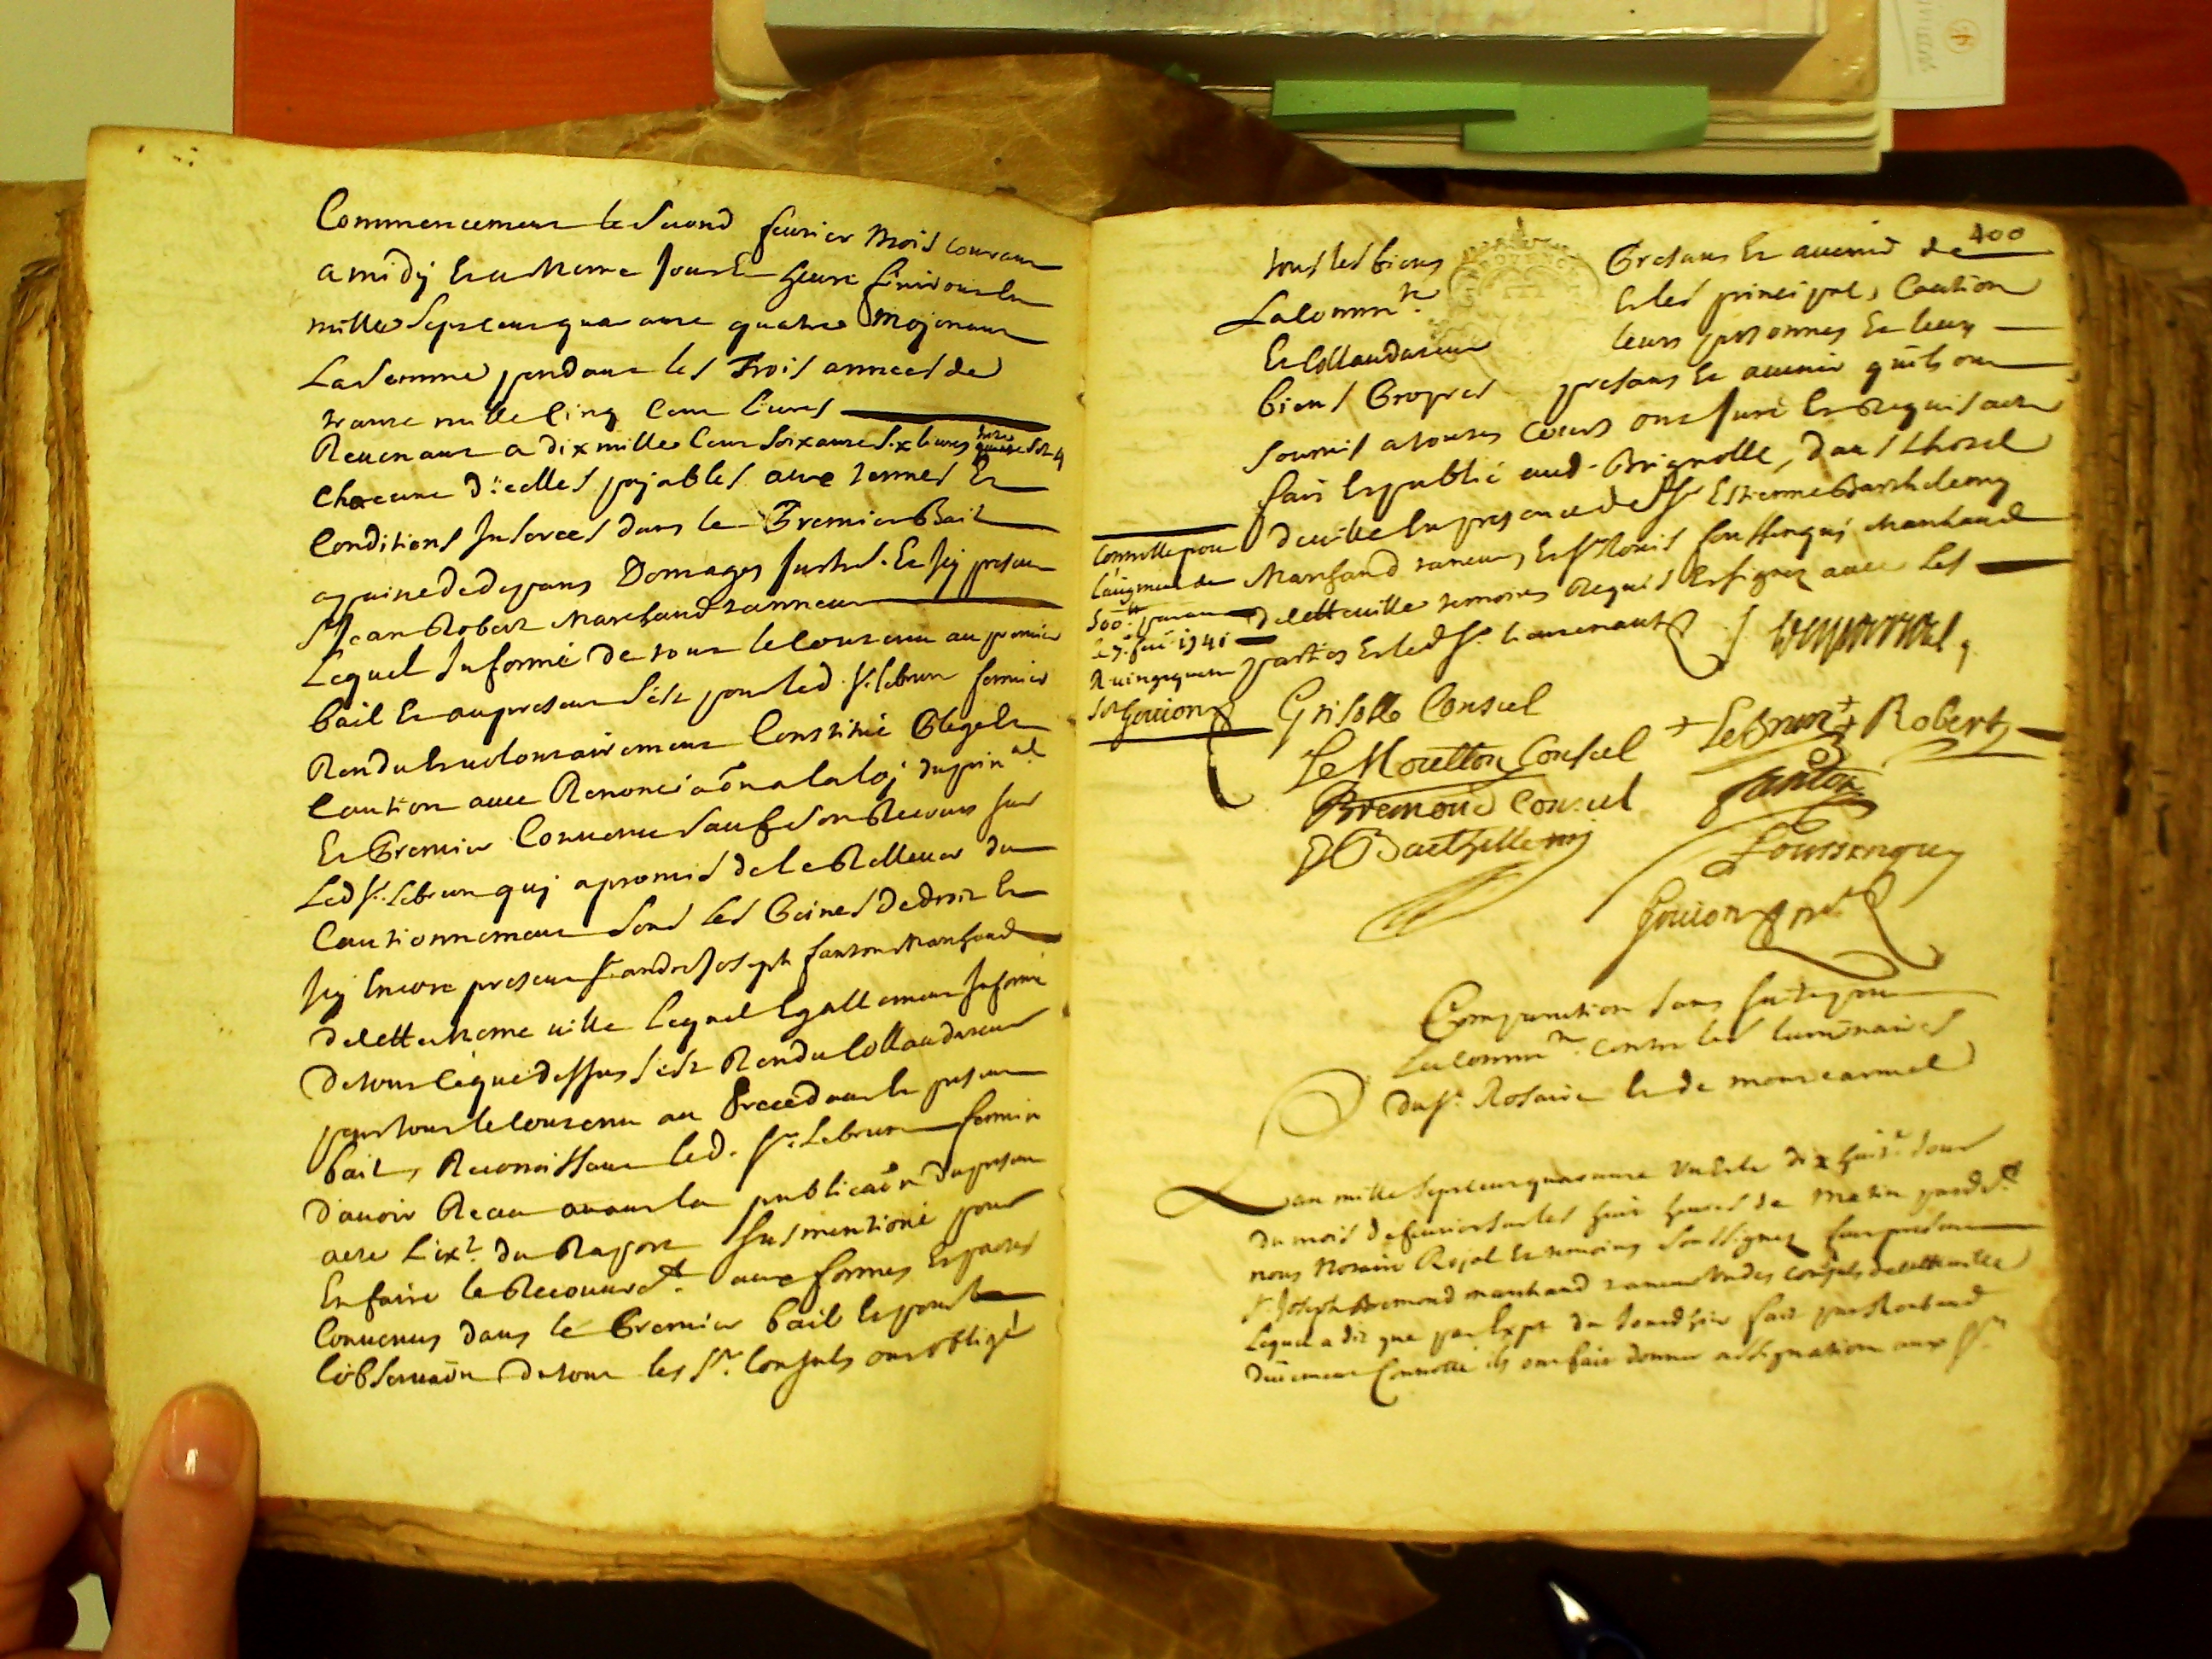 Commencement le second feurier mois courant
a midy Et a Meme Jour Et heure finiront En
mille sept cent quarante quatre Mojenant
La somme pendant les Trois années de
trante mille cinq Cent liures
Reuenant a dix mille Cent soixante six liures treze sols 4
chacune d'icelles pajables aux termes Et
Conditions Inserees dans le Premier Bail
a peine de depans Domages Justes. Et Icy present
Sr Jean Robert Marchand tanneur
Lequel Informé de tout le contenu au premier
bail Et au present s'est pour led. Sr. Lebrun fermier
Rendu Et uolontairement Constitué Plege Et
Caution auec Renonciaõn a la loj du prinal
Et Premier Conuenu sauf son Recours sur
Led Sr. Lebrun quj a promis de le Relleuer du
Cautionnement sous les Peines de droit Et
Icy Encore present Sr andré Joseph fanton Marchand
de cette Meme uille Lequel Egallement Informé
de tout ce que dessus s'est Rendu Collaudateur
pour tout le contenu au Precedant Et present
bail, Reconoissant led. Sr. Lebrun fermier
d'auoir Receu auant la publicaõn du present
acte L'ext. du Raport susmentioné pour
En faire le Recouurt. aux formes Et pactes
Conuenus dans le Premier bail Et pour
l'obseruaõn de tout les Srs. Consuls ont obligé
400
tous les biens Presans Et auenir de
La Commté. Et les principal, Caution
Et Collaudateur leurs personnes Et leurs
biens Propres presans Et auenir qu'ils ont
soumis a toutes Cours ont Juré Et Requis acte
fait Et publié aud. Brignolle, dans Lhotel
de uille En presence de Sr Estienne Barthelemy
Marchand taneur Et Sr Louis foussenquj Marchand
de cette uille temoins Requis Et signez auec les
parties Et led Sr. lieutenant
Connollé pour
L'augment de
500lt par an
le 7. feu. 1741
R uingt quatre
sols Gouion
Grisolle Consul
Le Moutton Consul
+ LeBrun + Robert
Bremond Consul
fanton
E Barthellemy
Foussenquy
Gouion Nre
Comparution sans prejudice pour
La Commté. contre les luminaires
du St. Rosaire Et de mont carmel
Lan mille sept cent quarante un Et le dix huitᵉ Jour
du mois de feurier sur les huit heures de Matin pardt.
nous Notaire Rojal Et temoins soussignez fut present
Sr. Joseph Bremond marchand taneur un des Consuls de cette uille
Lequel a dit que par Expt du Jour d'hier fait par Rouband
Duement Connollé ils ont fait donner assignation aux Srs